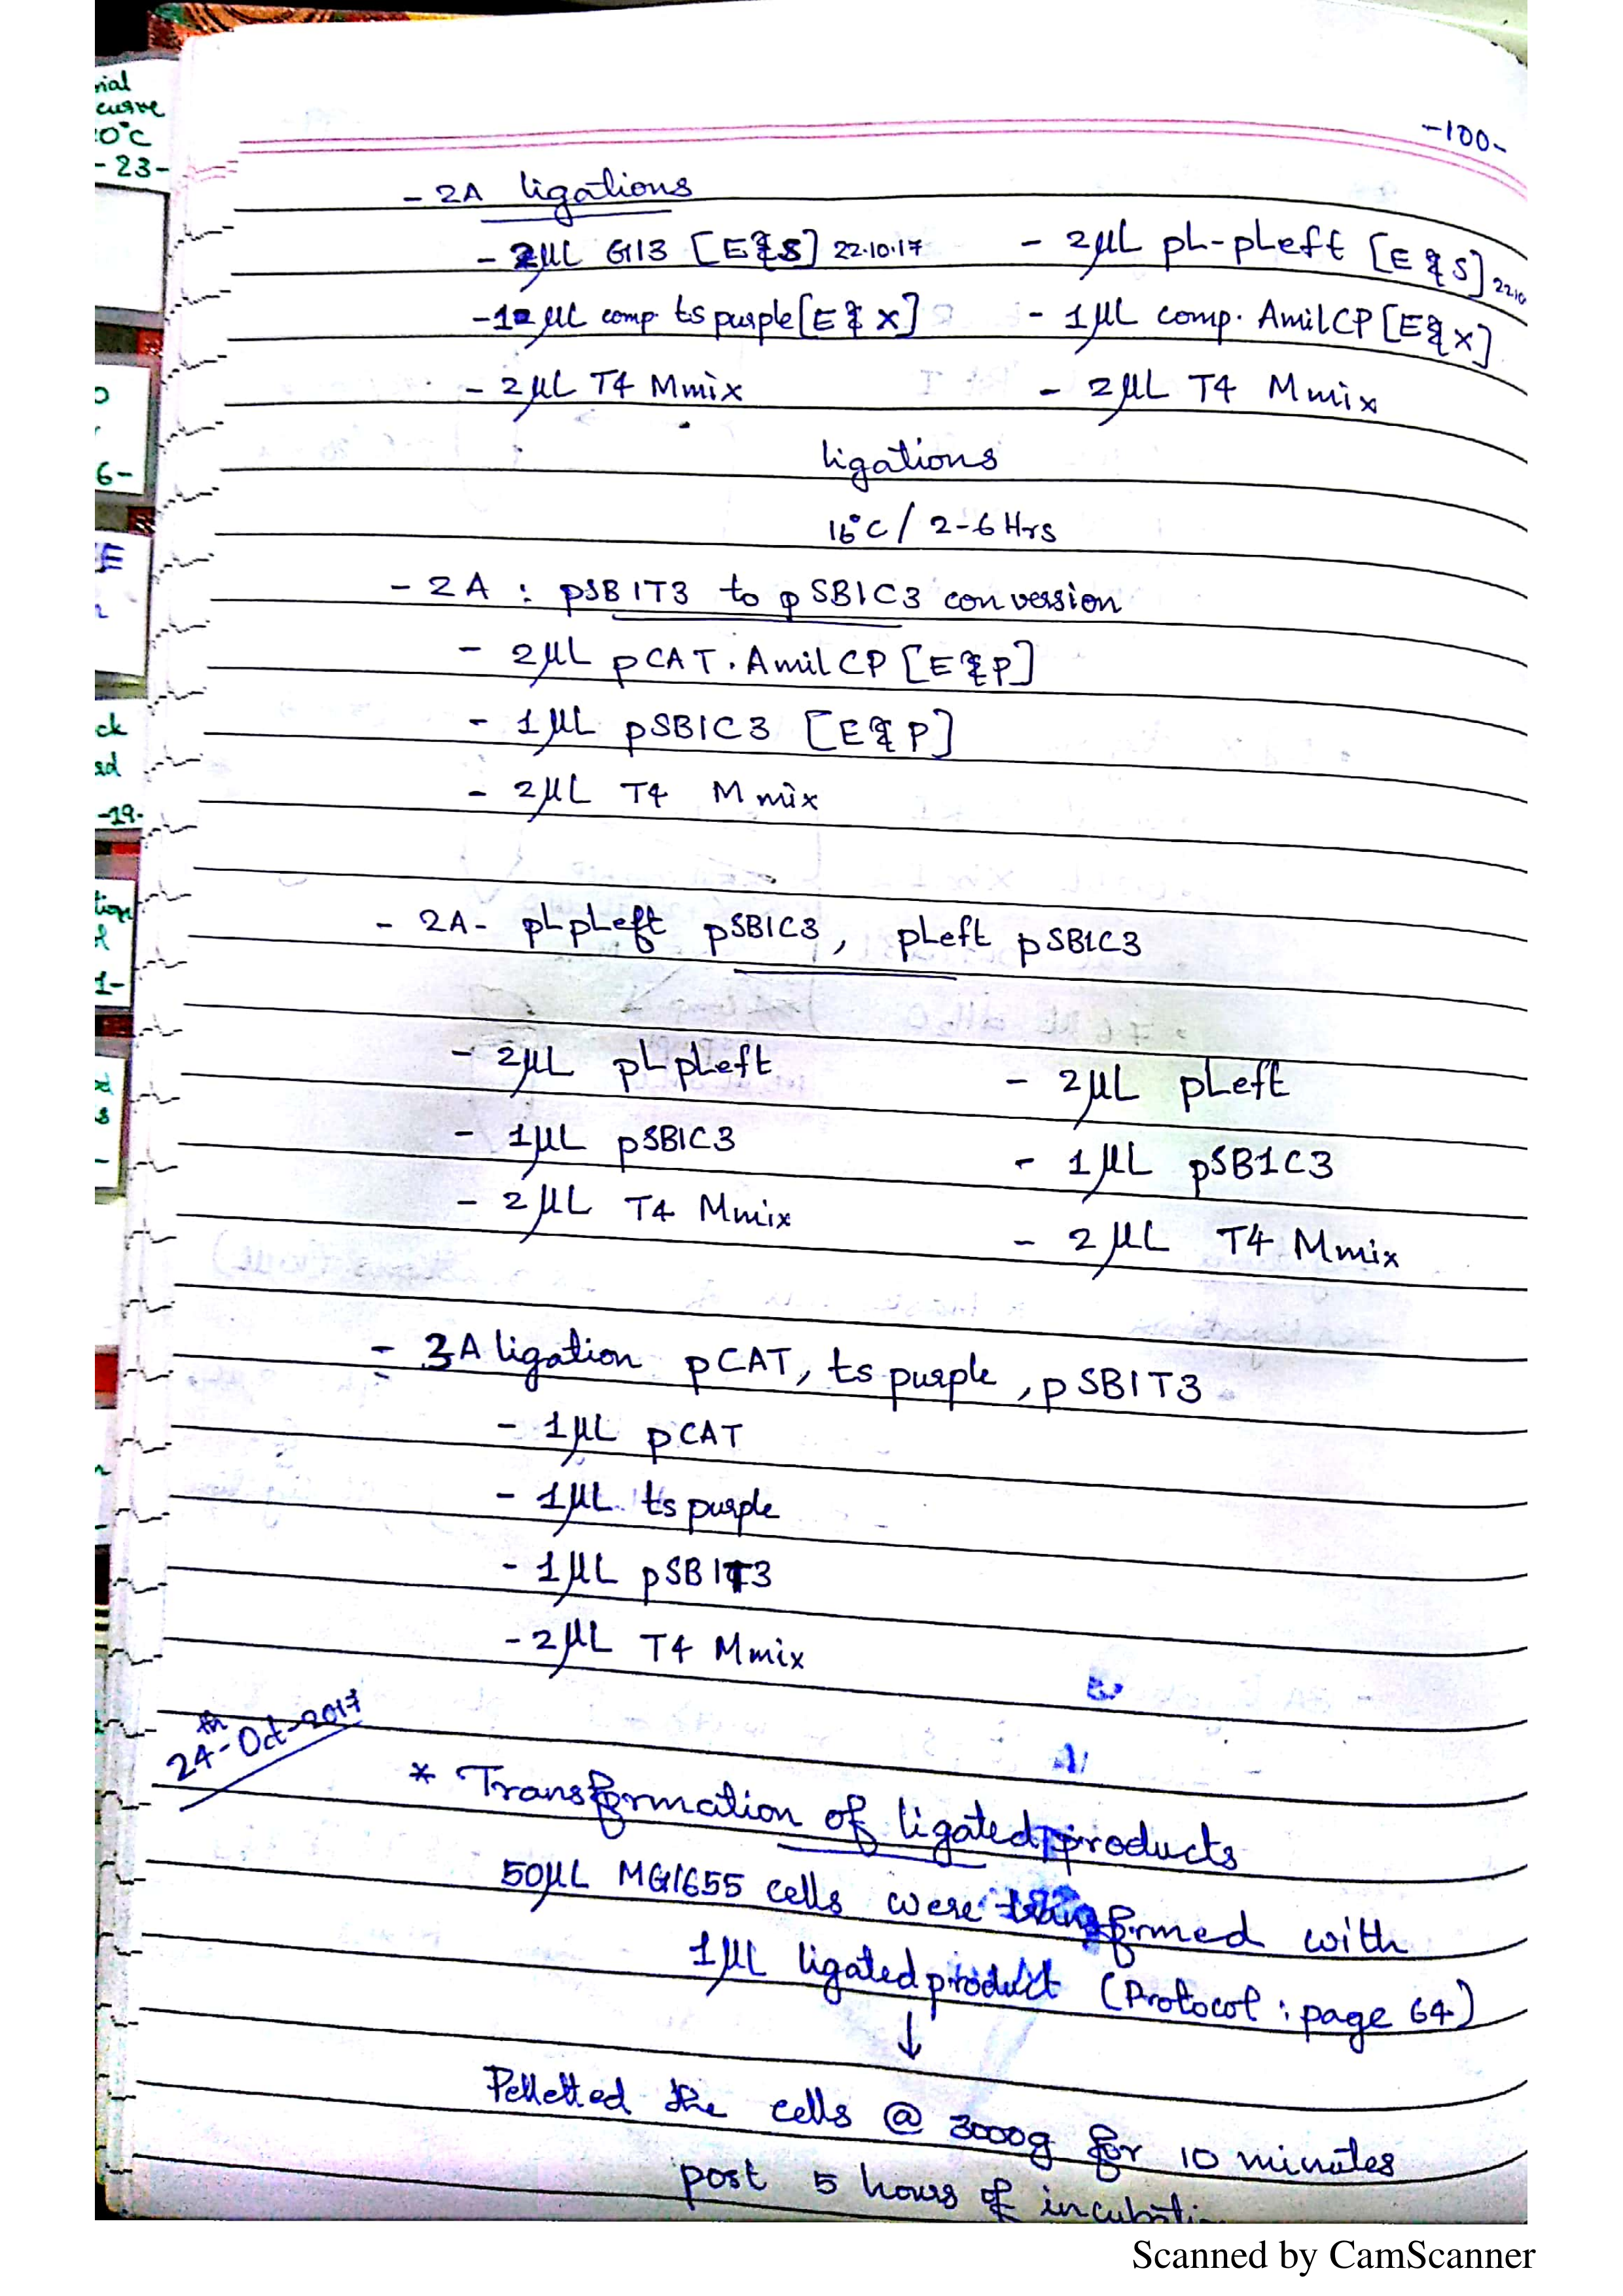 -100-
rial
curve
0°C
-23-
6-
E
ck
ad
-19-
tion
1-
s
- 2A ligations
- 2µL G113 [E&S] 22.10.17
- 1µL comp. tspurple [E&X]
- 2µL T4 Mmix
- 2µL pL-pLeft [E&S] 22.10
- 1µL comp. AmilCP [E&X]
- 2µL T4 Mmix
ligations
16°C / 2-6 Hrs
- 2A : pSB1T3 to pSB1C3 conversion
- 2µL pCAT.AmilCP [E&P]
- 1µL pSB1C3 [E&P]
- 2µL T4 Mmix
- 2A- pLpLeft pSB1C3, pLeft pSB1C3
- 2µL pLpLeft
- 1µL pSB1C3
- 2µL T4 Mmix
- 2µL pLeft
- 1µL pSB1C3
- 2µL T4 Mmix
- 3A ligation pCAT, tspurple, pSB1T3
- 1µL pCAT
- 1µL tspurple
- 1µL pSB1T3
- 2µL T4 Mmix
24th-Oct-2017
* Transformation of ligated products
50µL MG1655 cells were transformed with
1µL ligated product (Protocol : page 64)
↓
Pelletted the cells @ 3000g for 10 minutes
post 5 hours of
Scanned by CamScanner